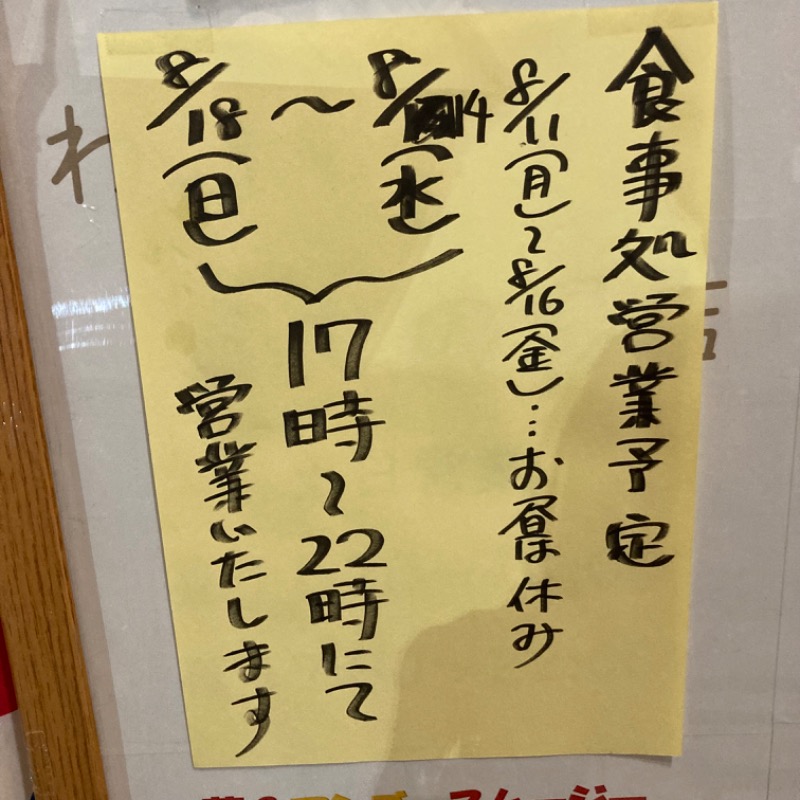 食事処営業予定
8/11(月)〜8/16(金)…お昼は休み
8/14(水)
〜
8/18(日)
17時〜22時にて
営業いたします
わ